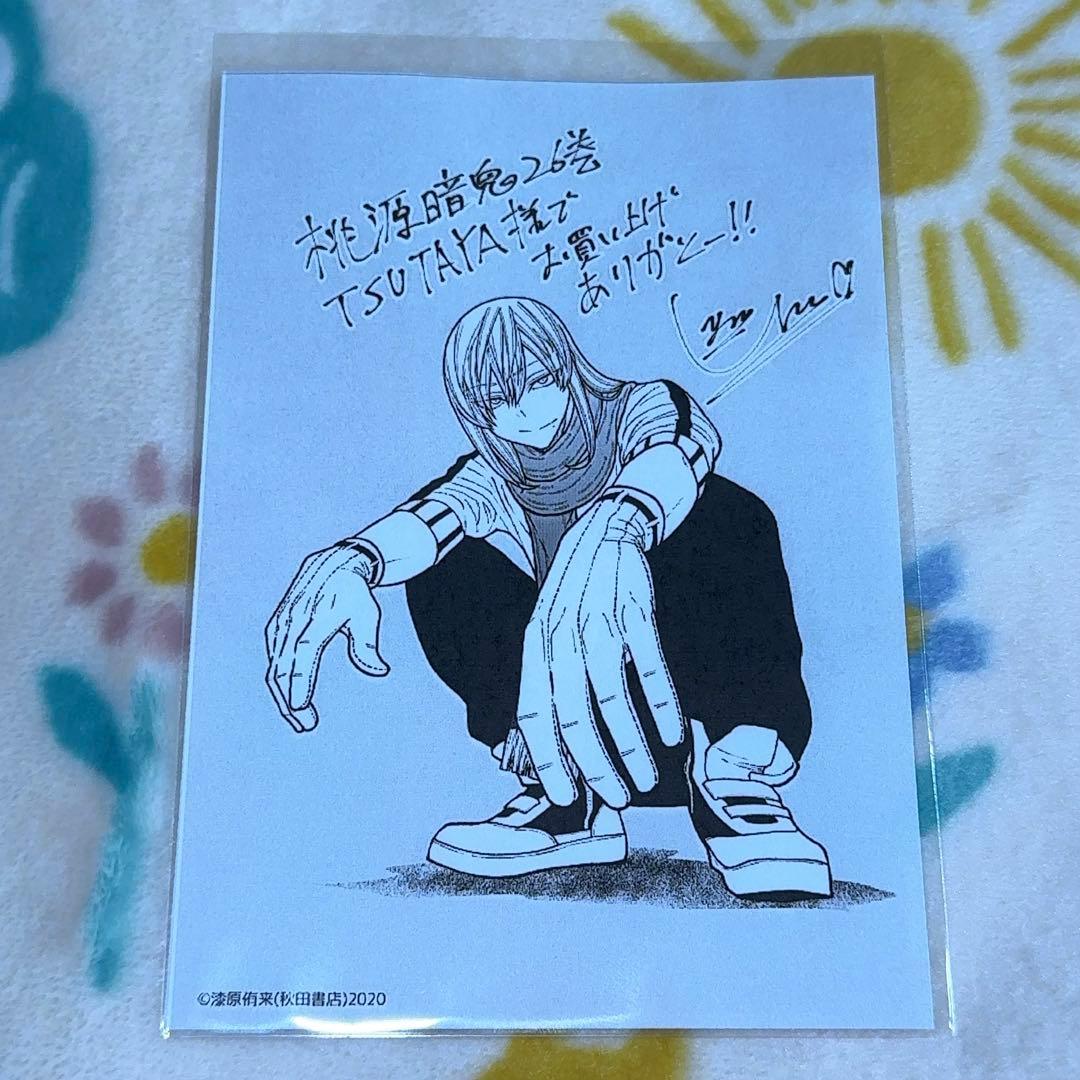 桃源暗鬼26巻
TSUTAYA様で
お買い上げ
ありがとー!!
©漆原侑来(秋田書店)2020